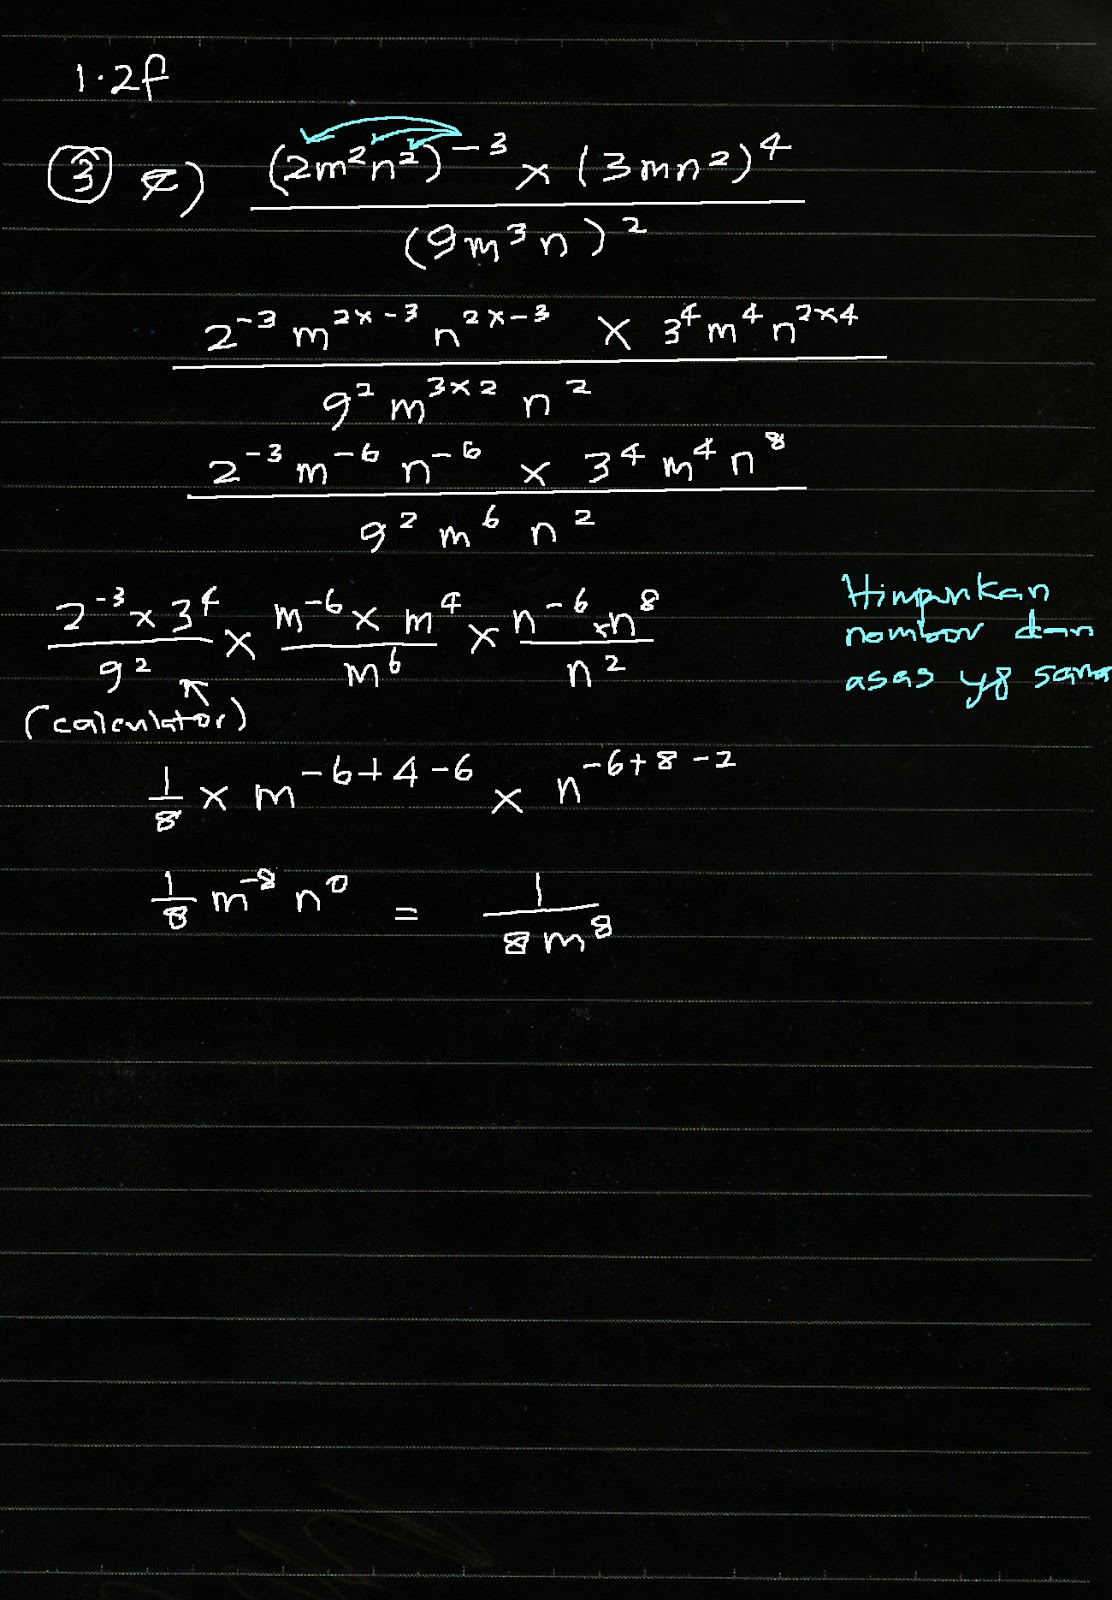 1.2f
③ c) (2m²n²)⁻³ × (3mn²)⁴
(9m³n)²
2⁻³ m²ˣ⁻³ n²ˣ⁻³ × 3⁴m⁴n²ˣ⁴
9² m³ˣ² n²
2⁻³ m⁻⁶ n⁻⁶ × 3⁴ m⁴ n⁸
9² m⁶ n²
2⁻³ × 3⁴ × m⁻⁶ × m⁴ × n⁻⁶ × n⁸
9² m⁶ n²
(calculator)
Himpunkan
nombor dan
asas yg sama
1/8 × m⁻⁶⁺⁴⁻⁶ × n⁻⁶⁺⁸⁻²
1/8 m⁻⁸ n⁰ = 1/8m⁸